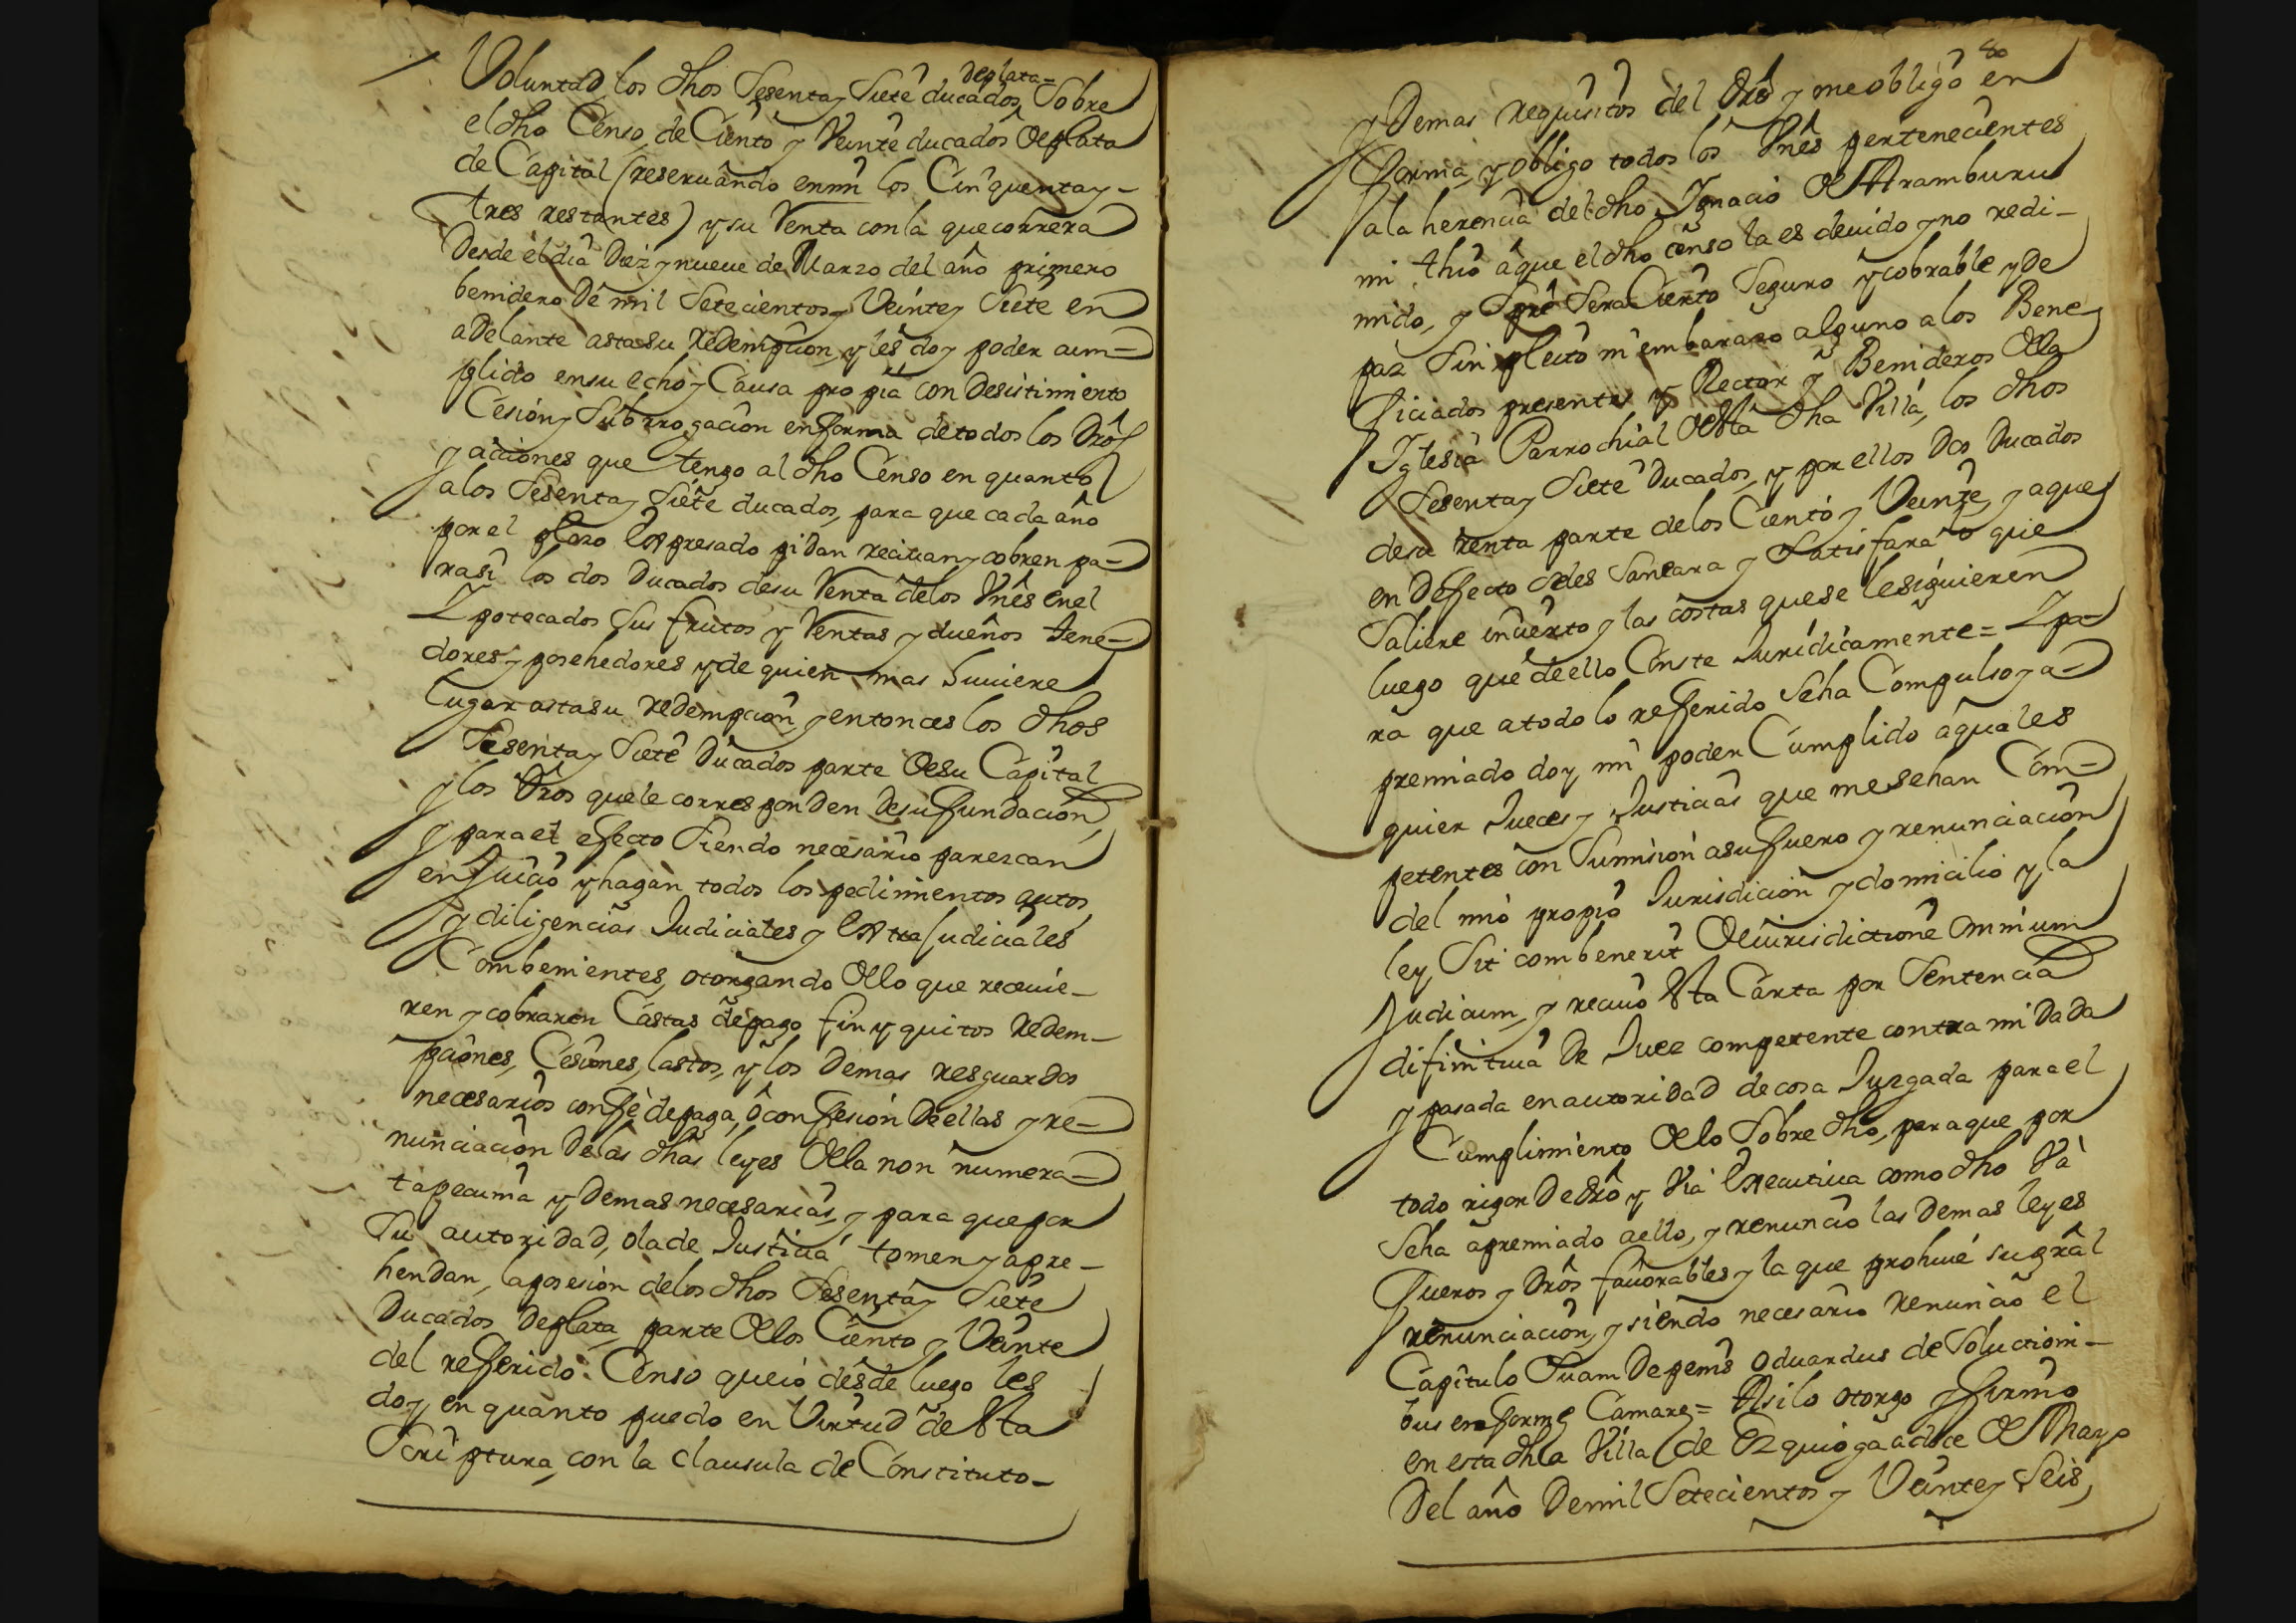 Voluntad los dhos Sesenta y Siete ducados deplata= Sobre
el dho Censo de Ciento y Veinte ducados de plata
de Capital (reseruando en mi los Cinquenta y
tres restantes) y su Renta con la que correra
Desde el dia Diez y nueue de Marzo del año primero
benidero De mil Setecientos y Veinte y Siete en
adelante asta su Redempcion, y les doy poder cum=
plido en su echo y Causa propia con Desistimiento
Cesion y Subrrogacion en forma de todos los Dros
y aciones que tengo al dho Censo en quanto
a los Sesenta y Siete ducados, para que cada año
por el plazo Expresado pidan reciuan y cobren pa=
ra si los dos Ducados de su Renta de los Vnes en el
Ypotecados Sus frutos y Rentas y dueños tene=
dores y posehedores y de quien mas huuiere
lugar asta su redempcion y entonces los dhos
Sesenta y Siete Ducados parte de su Capital
y los Dros que le corresponden De su fundacion,
y para el efecto Siendo necesario parezcan
en Juicio y hagan todos los pedimientos autos,
y diligencias Judiciales y Extra Judiciales
Combenientes, otorgando de lo que receuie-
ren y cobraren Cartas de pago fin y quitos Redem-
pciones, Cesiones, lastos, y los Demas resguardos
necesarios con fe de paga, ô confesion De ellas y re=
nunciacion De las dhas leyes De la non numera=
ta pecunia y Demas necesarias, y para que por
Su autoridad, o la de Justicia tomen y apre-
hendan, la posesion de los dhos Sesenta y Siete
Ducados De plata, parte De los Ciento y Veinte
del referido Censo que io desde luego les
doy en quanto puedo en Virtud de Esta
Scriptura, con la clausula de Constituto-
80
y Demas requisitos del Dro y me obligo en
forma, y obligo todos los Vnes pertenecientes
a la herencia del dho Ignacio de Aramburu
mi thio â que el dho censo la es deuido y no redi-
mido, y Spre Sera Cierto Seguro y cobrable y De
paz Sin pleito ni embarazo alguno a los Bene=
ficiados presentes y Rector y Benideros De la
Iglesia Parrochial De Esta dha Villa, los dhos
Sesenta y Siete Ducados, y por ellos Dos Ducados
de su renta parte de los Ciento y Veinte, y a que
en Defecto Seles Saneara y Satisfara lo que
Saliere incierto y las costas que se le siguieren
luego que de ello Conste Juridicamente = Y pa=
ra que a todo lo referido Seha Compulso y a=
premiado doy mi poder Cumplido a quales
quier Jueces y Justicias que me sehan Com=
petentes con Sumision a su fuero y renunciacion
del mio propio Jurisdicion y domicilio y la
ley Sit combenerit De iurisdictione omnium
Judicum, y reciuo Esta Carta por Sentencia
difinitiua De Juez competente contra mi Dada
y pasada en autoridad de cosa Juzgada para el
Cumplimiento De lo Sobre dho, para que por
todo rigor De dro y Via Executiua como dho Va
Seha apremiado a ello, y renuncio las Demas leyes
fueros y Dros fauorables y la que prohiue su gral
renunciacion, y siendo necesario renuncio el
Capitulo Suam De penis Oduardus de Solutioni-
bus en forma Camare = Asi lo otorgo y firmo
en esta dha Villa de Ezquioga a doce De Mayo
Del año De mil Setecientos y Veinte y Seis,